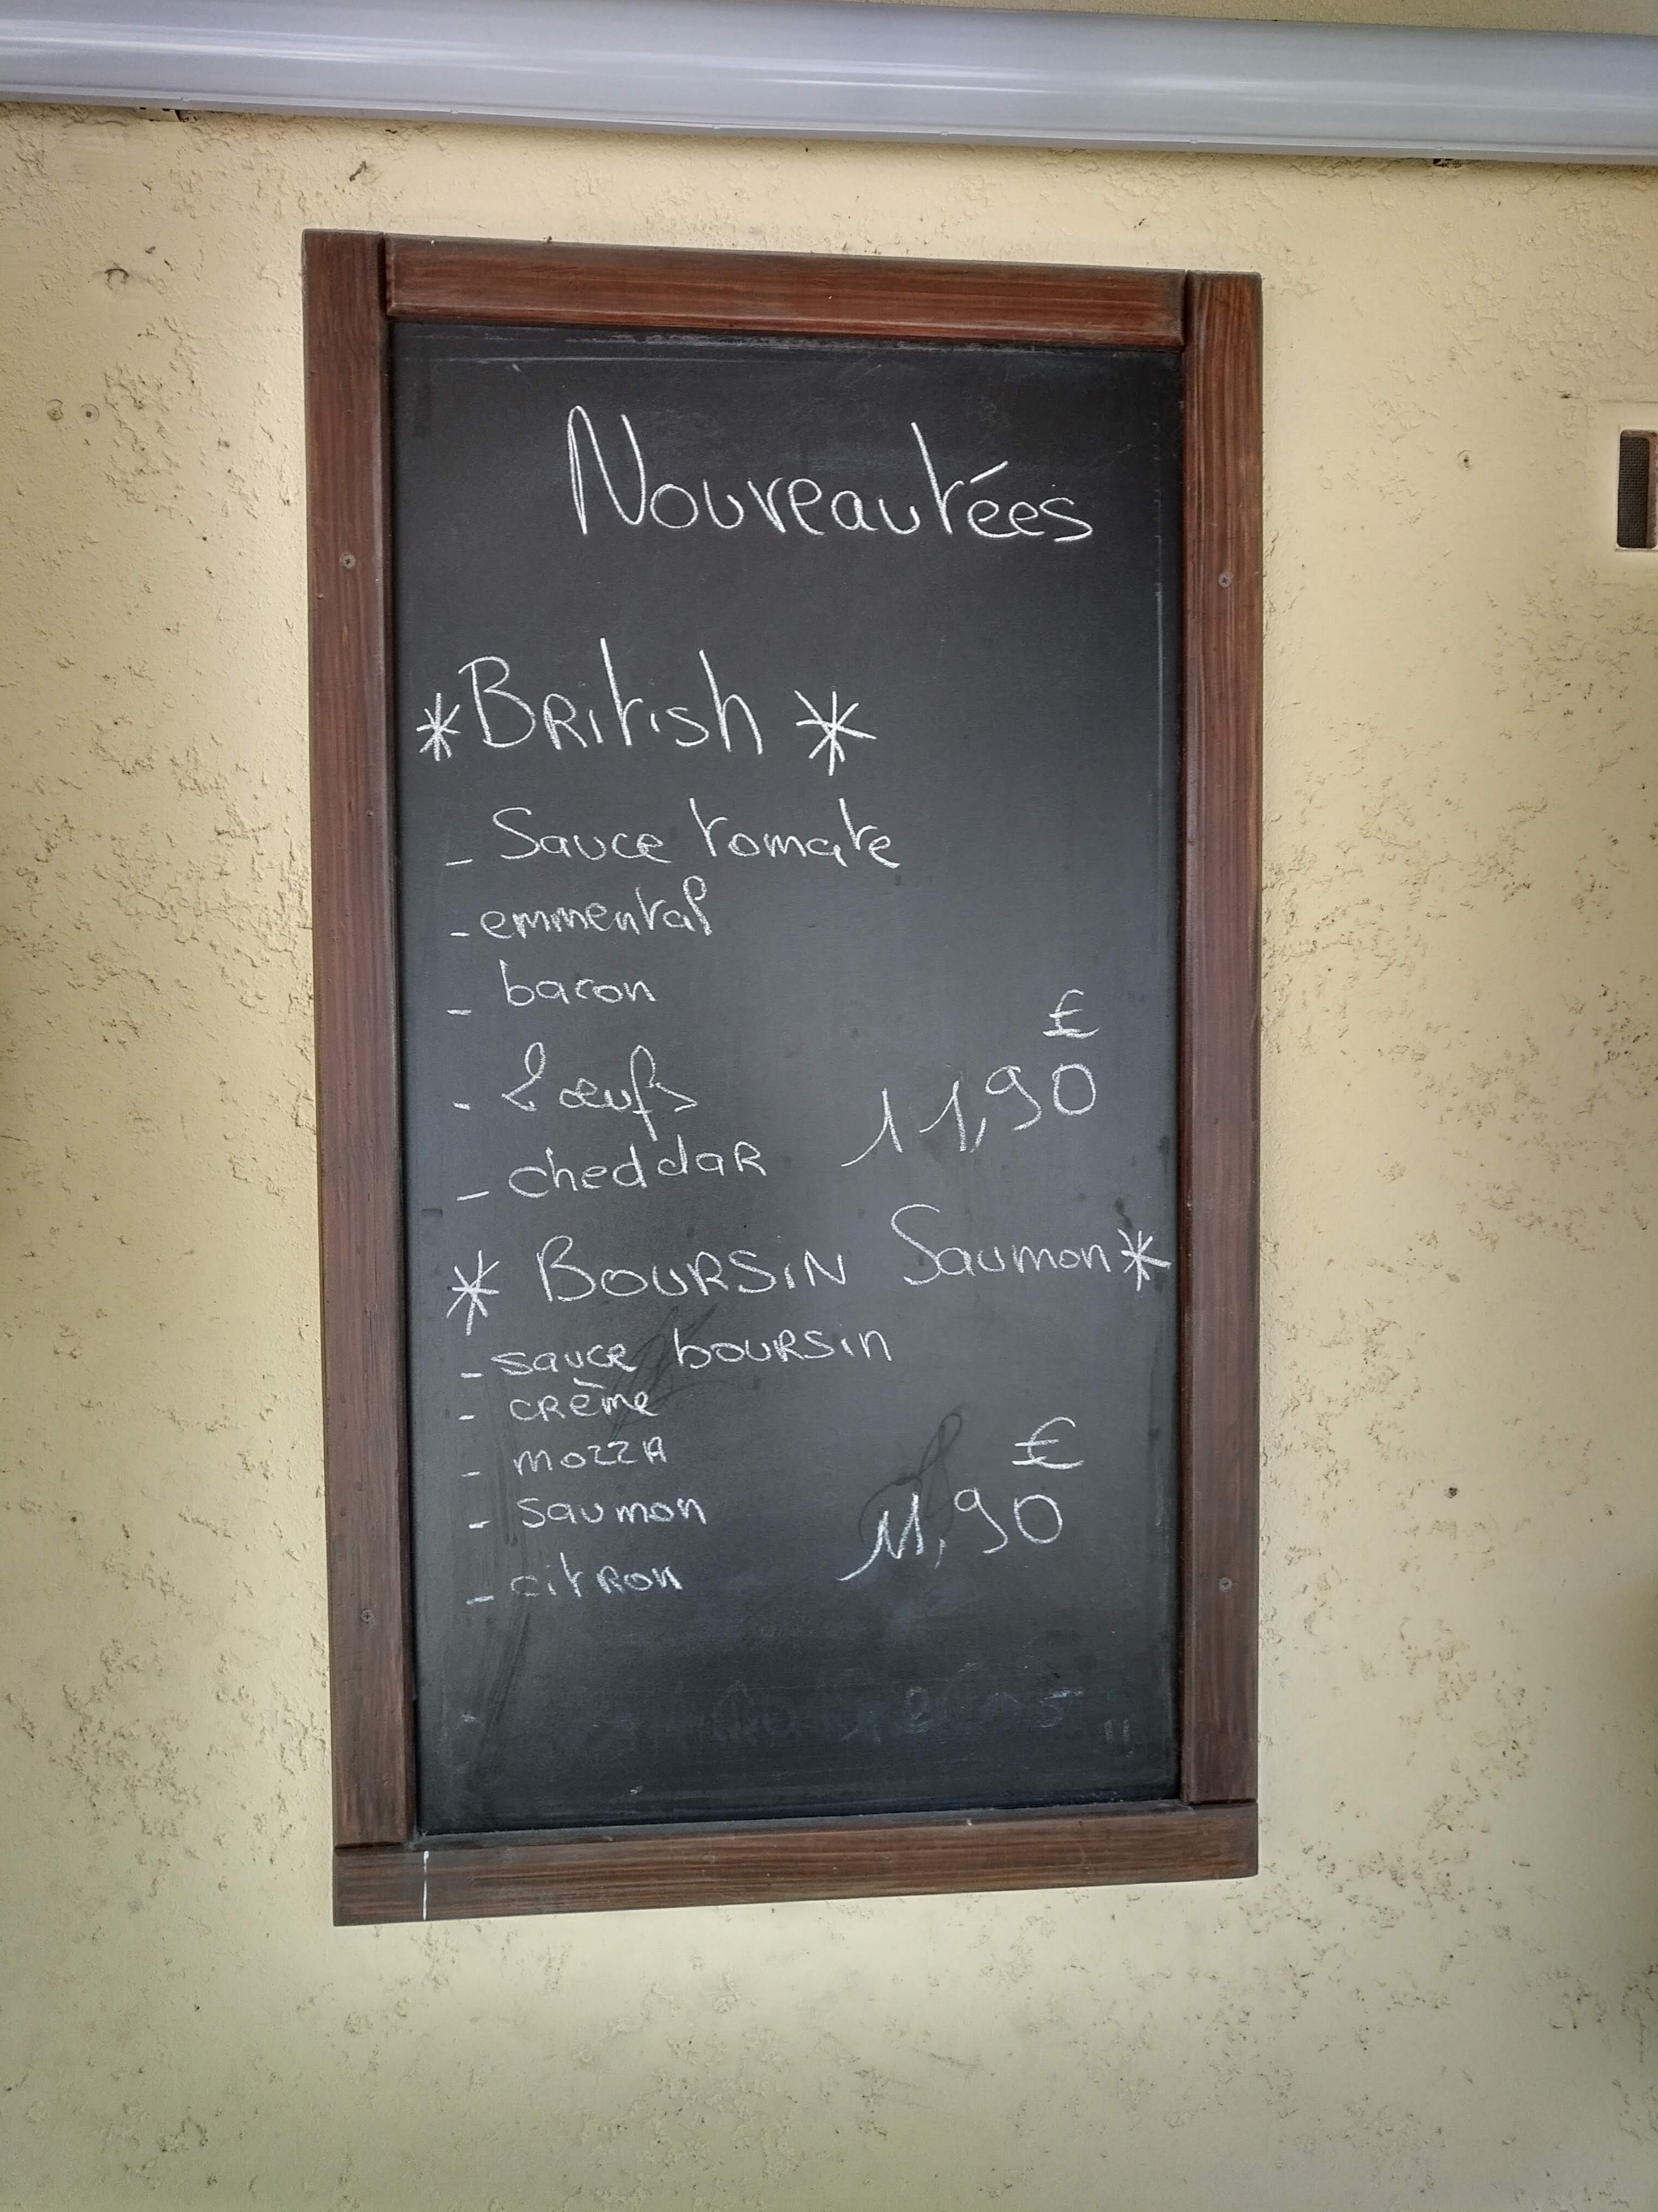 Nouveautées
*British *
- Sauce tomate
- emmental
- bacon
- 2 œufs
- cheddar
€
11,90
* BOURSIN Saumon*
- sauce boursin
- crème
- mozza
- saumon
- citron
€
11,90